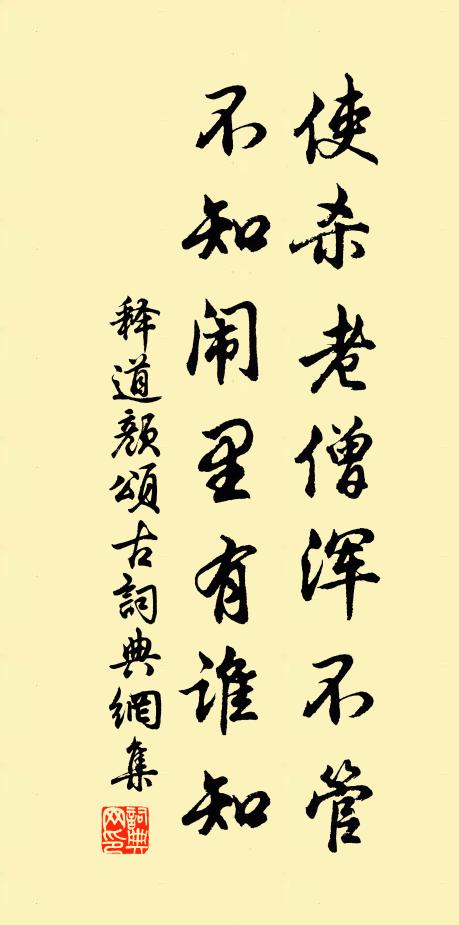 使杀老僧浑不管
不知闹里有谁知
释道颜颂古詞典網集
詞典網印